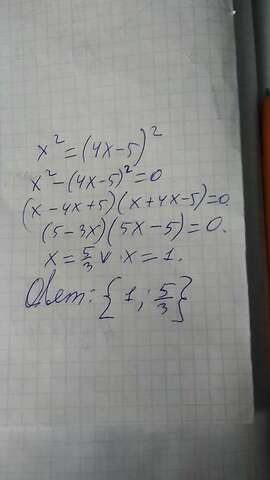 x² = (4x-5)²
x² - (4x-5)² = 0
(x - 4x + 5)(x + 4x - 5) = 0.
(5 - 3x)(5x - 5) = 0.
x = 5/3 ∨ x = 1.
Ответ: {1; 5/3}